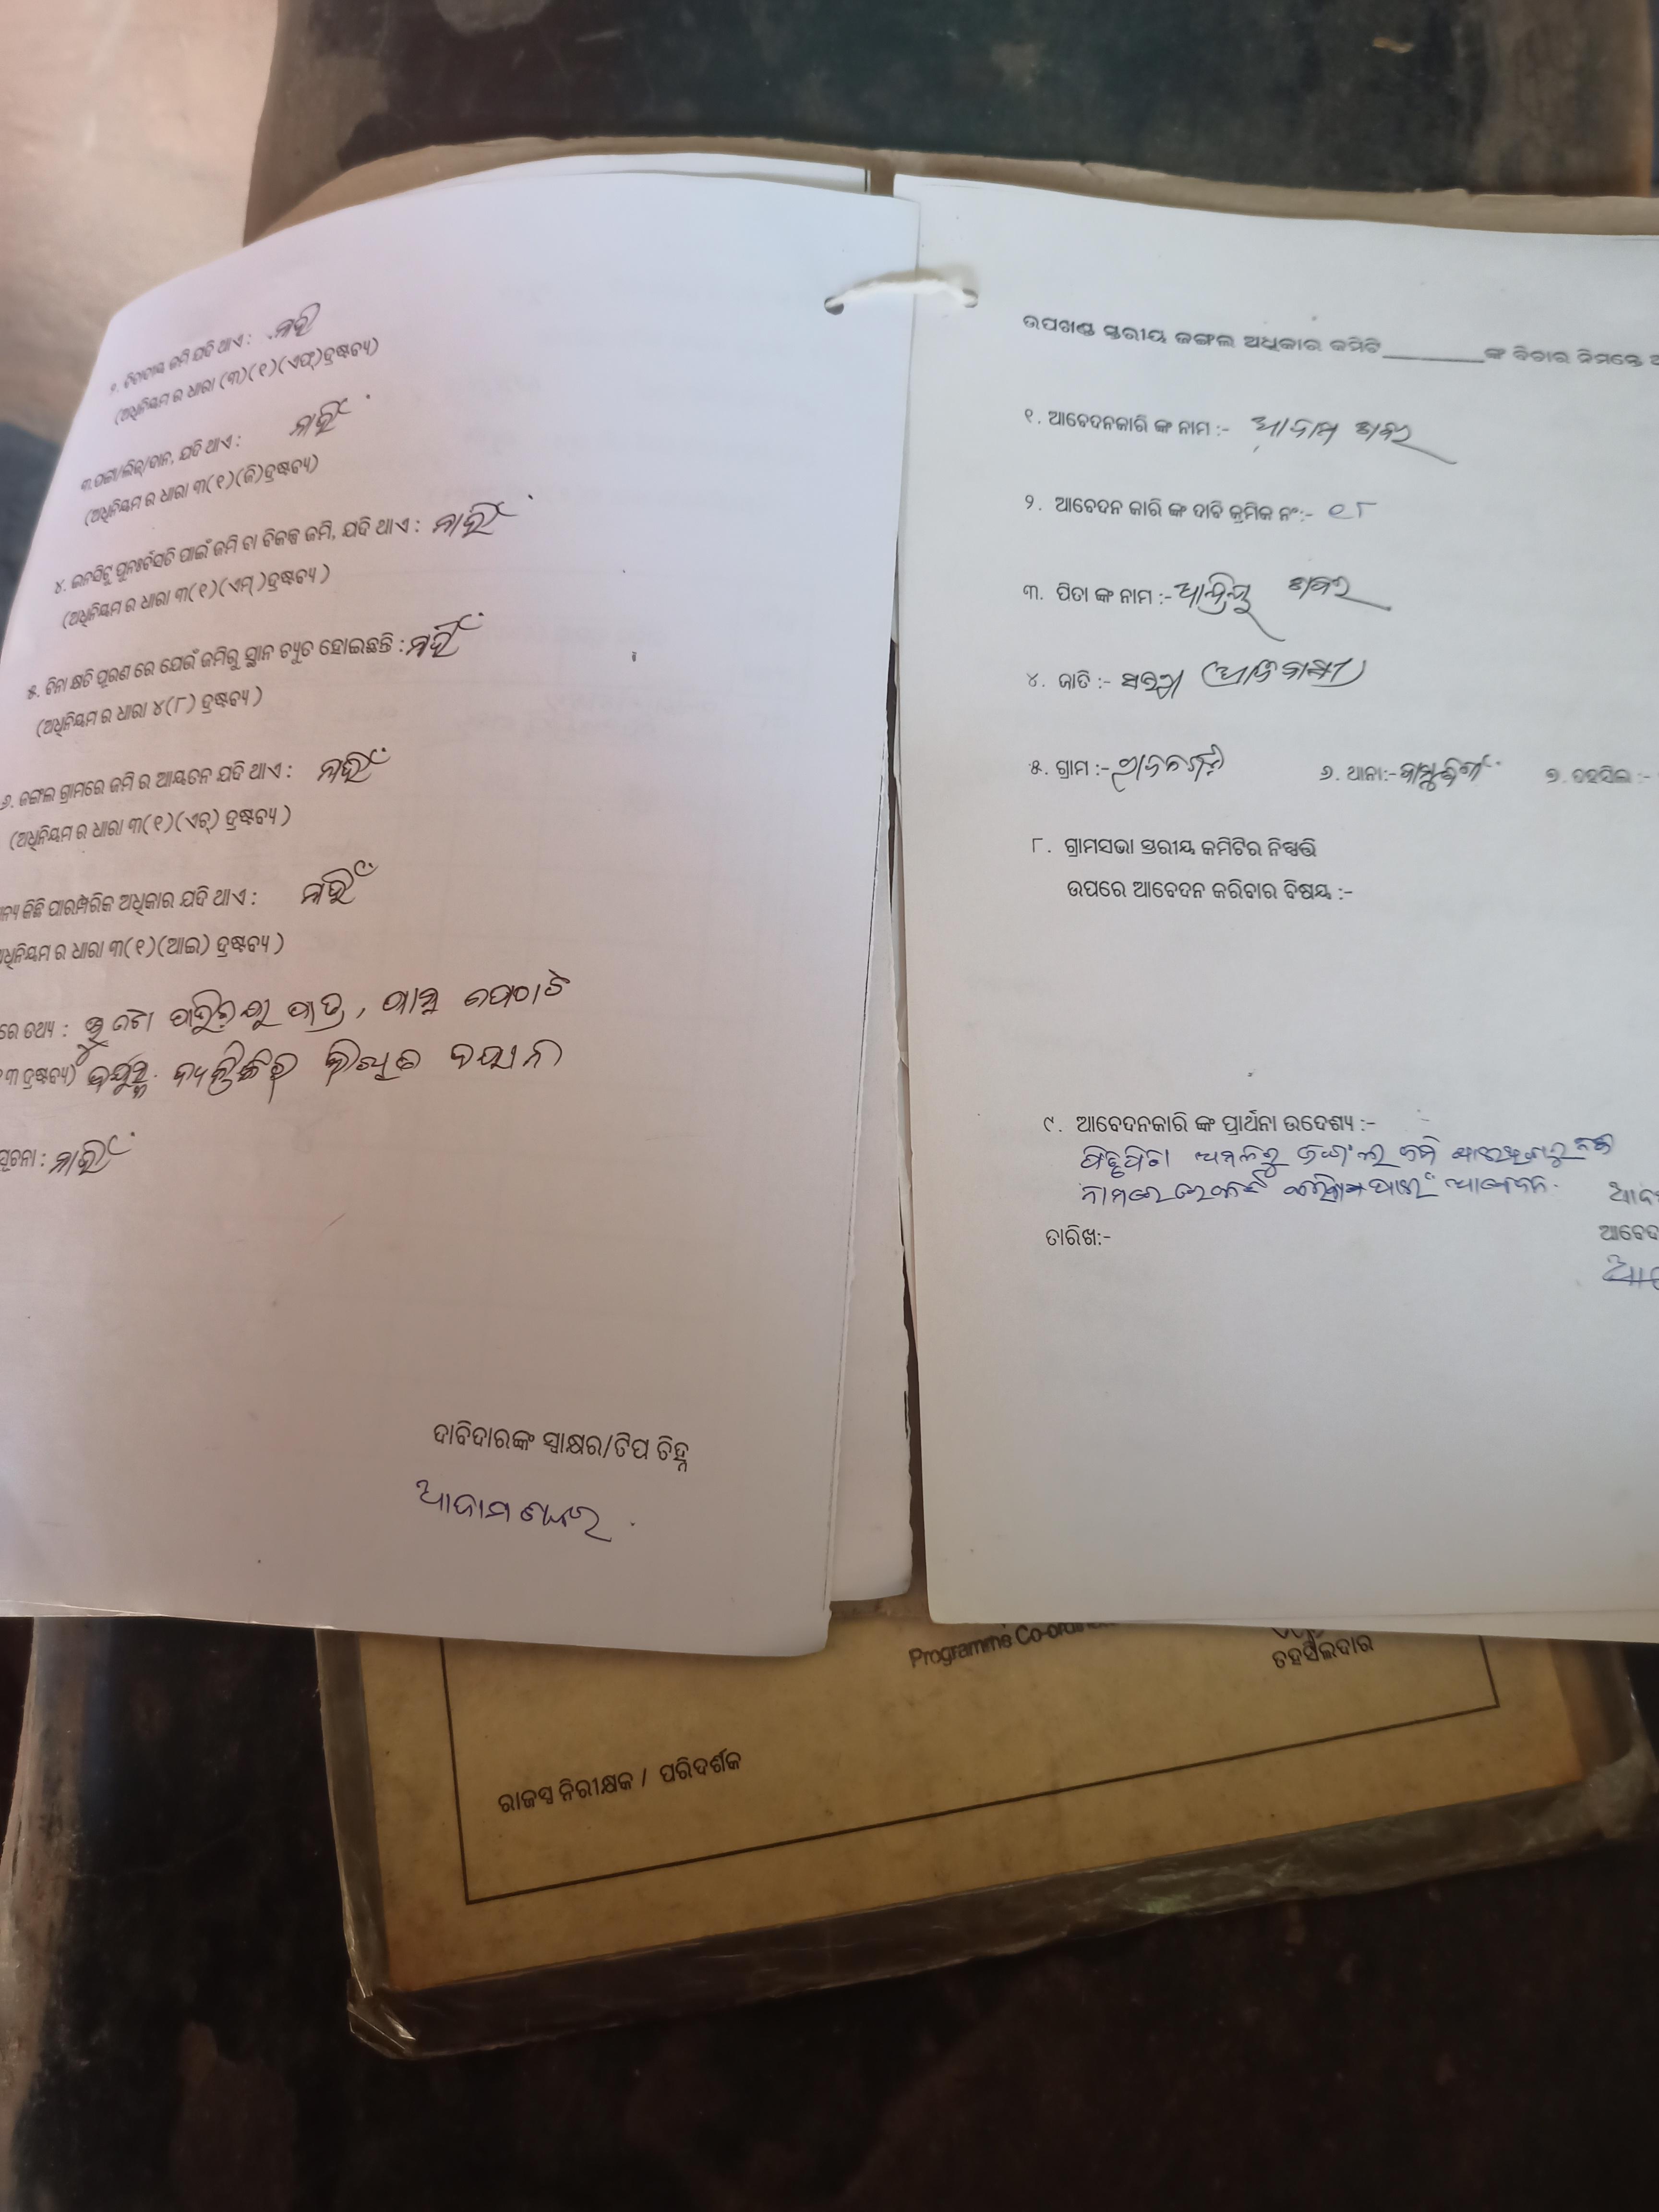 ୨. ବିବାଦୀୟ ଜମି ଯଦି ଥାଏ : ନାହିଁ
(ଅଧିନିୟମ ର ଧାରା (୩)(୧)(ଏଫ୍)ଦ୍ରଷ୍ଟବ୍ୟ)
୩.ପଟ୍ଟା/ଲିଜ୍/ଦାନ, ଯଦି ଥାଏ : ନାହିଁ
(ଅଧିନିୟମ ର ଧାରା ୩(୧)(ଜି)ଦ୍ରଷ୍ଟବ୍ୟ)
୪. ଇନସିଟୁ ପୁନଃର୍ବସତି ପାଇଁ ଜମି ବା ବିକଳ୍ପ ଜମି, ଯଦି ଥାଏ : ନାହିଁ
(ଅଧିନିୟମ ର ଧାରା ୩(୧)(ଏମ୍ )ଦ୍ରଷ୍ଟବ୍ୟ )
୫. ବିନା କ୍ଷତି ପୂରଣ ରେ ଯେଉଁ ଜମିରୁ ସ୍ଥାନ ଚ୍ୟୁତ ହୋଇଛନ୍ତି : ନାହିଁ
(ଅଧିନିୟମ ର ଧାରା ୪(୮) ଦ୍ରଷ୍ଟବ୍ୟ )
୬. ଜଙ୍ଗଲ ଗ୍ରାମରେ ଜମି ର ଆୟତନ ଯଦି ଥାଏ : ନାହିଁ
(ଅଧିନିୟମ ର ଧାରା ୩(୧)(ଏଚ୍) ଦ୍ରଷ୍ଟବ୍ୟ )
ନ୍ୟ କିଛି ପାରମ୍ପରିକ ଅଧିକାର ଯଦି ଥାଏ : ନାହିଁ
ଧିନିୟମ ର ଧାରା ୩(୧)(ଆଇ) ଦ୍ରଷ୍ଟବ୍ୟ )
ରେ ତଥ୍ୟ :
୧୩ ଦ୍ରଷ୍ଟବ୍ୟ) ବୟସ୍କ ବ୍ୟକ୍ତିଙ୍କର ଲିଖିତ ବୟାନ
ସୂଚନା : ନାହିଁ
ଦାବିଦାରଙ୍କ ସ୍ୱାକ୍ଷର/ଟିପ ଚିହ୍ନ
ଆଦାମ ଶବର
ଉପଖଣ୍ଡ ସ୍ତରୀୟ ଜଙ୍ଗଲ ଅଧିକାର କମିଟି_________ଙ୍କ ବିଚାର ନିମନ୍ତେ
୧. ଆବେଦନକାରି ଙ୍କ ନାମ :- ଆଦାମ ଶବର
୨. ଆବେଦନ କାରି ଙ୍କ ଦାବି କ୍ରମିକ ନଂ:- ୧୮
୩. ପିତା ଙ୍କ ନାମ :- ଶବର
୪. ଜାତି :- ସଉରା (ଆଦିବାସୀ)
୫. ଗ୍ରାମ :-
୬. ଥାନା:-
୭. ତହସିଲ :-
୮. ଗ୍ରାମସଭା ସ୍ତରୀୟ କମିଟିର ନିଷ୍ପତ୍ତି
ଉପରେ ଆବେଦନ କରିବାର ବିଷୟ :-
୯. ଆବେଦନକାରି ଙ୍କ ପ୍ରାର୍ଥନା ଉଦେଶ୍ୟ :-
ଅମଳରୁ ଜଙ୍ଗଲ ଜମି ନିଜ
ନାମରେ ରେକର୍ଡ ପାଇଁ ଆବେଦନ
ତାରିଖ:-
ଆବେଦ
Programme Co-ordin
ତହସିଲଦାର
ରାଜସ୍ୱ ନିରୀକ୍ଷକ / ପରିଦର୍ଶକ